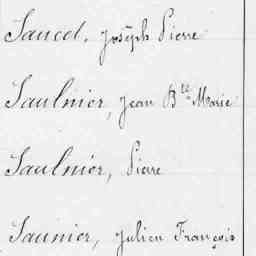 Saucet, Joseph Pierre
Saulnier, Jean Bte Marie
Saulnier, Pierre
Saunier, Julien François